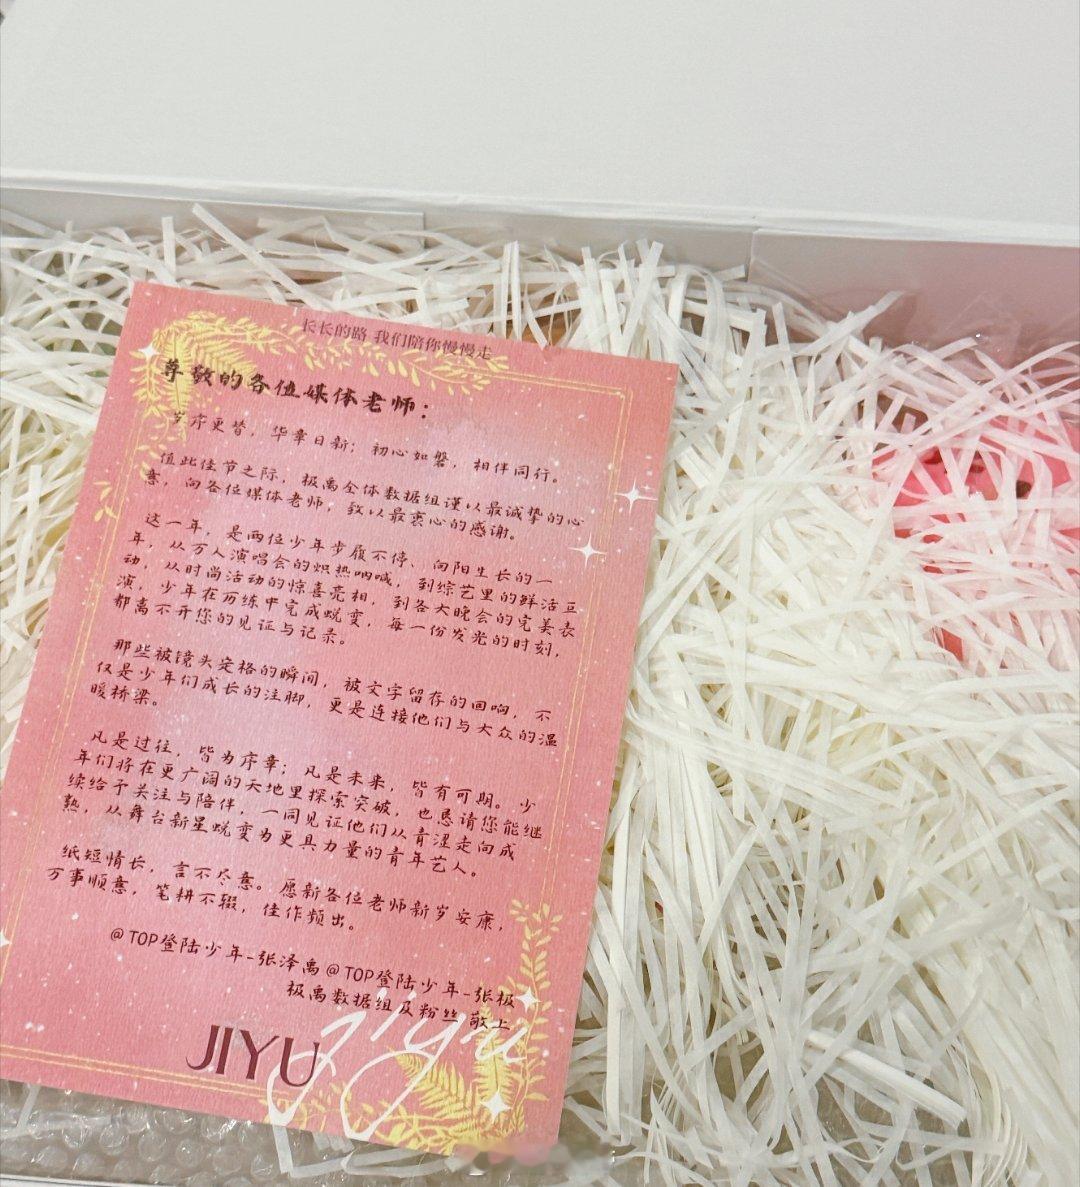 长长的路 我们陪你慢慢走
尊敬的各位媒体老师：
岁序更替，华章日新；初心如磐，相伴同行。
值此佳节之际，极禹全体数据组谨以最诚挚的心
意，向各位媒体老师，致以最衷心的感谢。
这一年，是两位少年步履不停、向阳生长的一
年，从万人演唱会的炽热呐喊，到综艺里的鲜活互
动，从时尚活动的惊喜亮相，到各大晚会的完美表
演，少年在历练中完成蜕变，每一份发光的时刻，
都离不开您的见证与记录。
那些被镜头定格的瞬间，被文字留存的回响，不
仅是少年们成长的注脚，更是连接他们与大众的温
暖桥梁。
凡是过往，皆为序章；凡是未来，皆有可期。少
年们将在更广阔的天地里探索突破，也恳请您能继
续给予关注与陪伴，一同见证他们从青涩走向成
熟，从舞台新星蜕变为更具力量的青年艺人。
纸短情长，言不尽意。愿新各位老师新岁安康，
万事顺意，笔耕不辍，佳作频出。
@TOP登陆少年-张泽禹@TOP登陆少年-张极
极禹数据组及粉丝 敬上
JIYU
jiyu